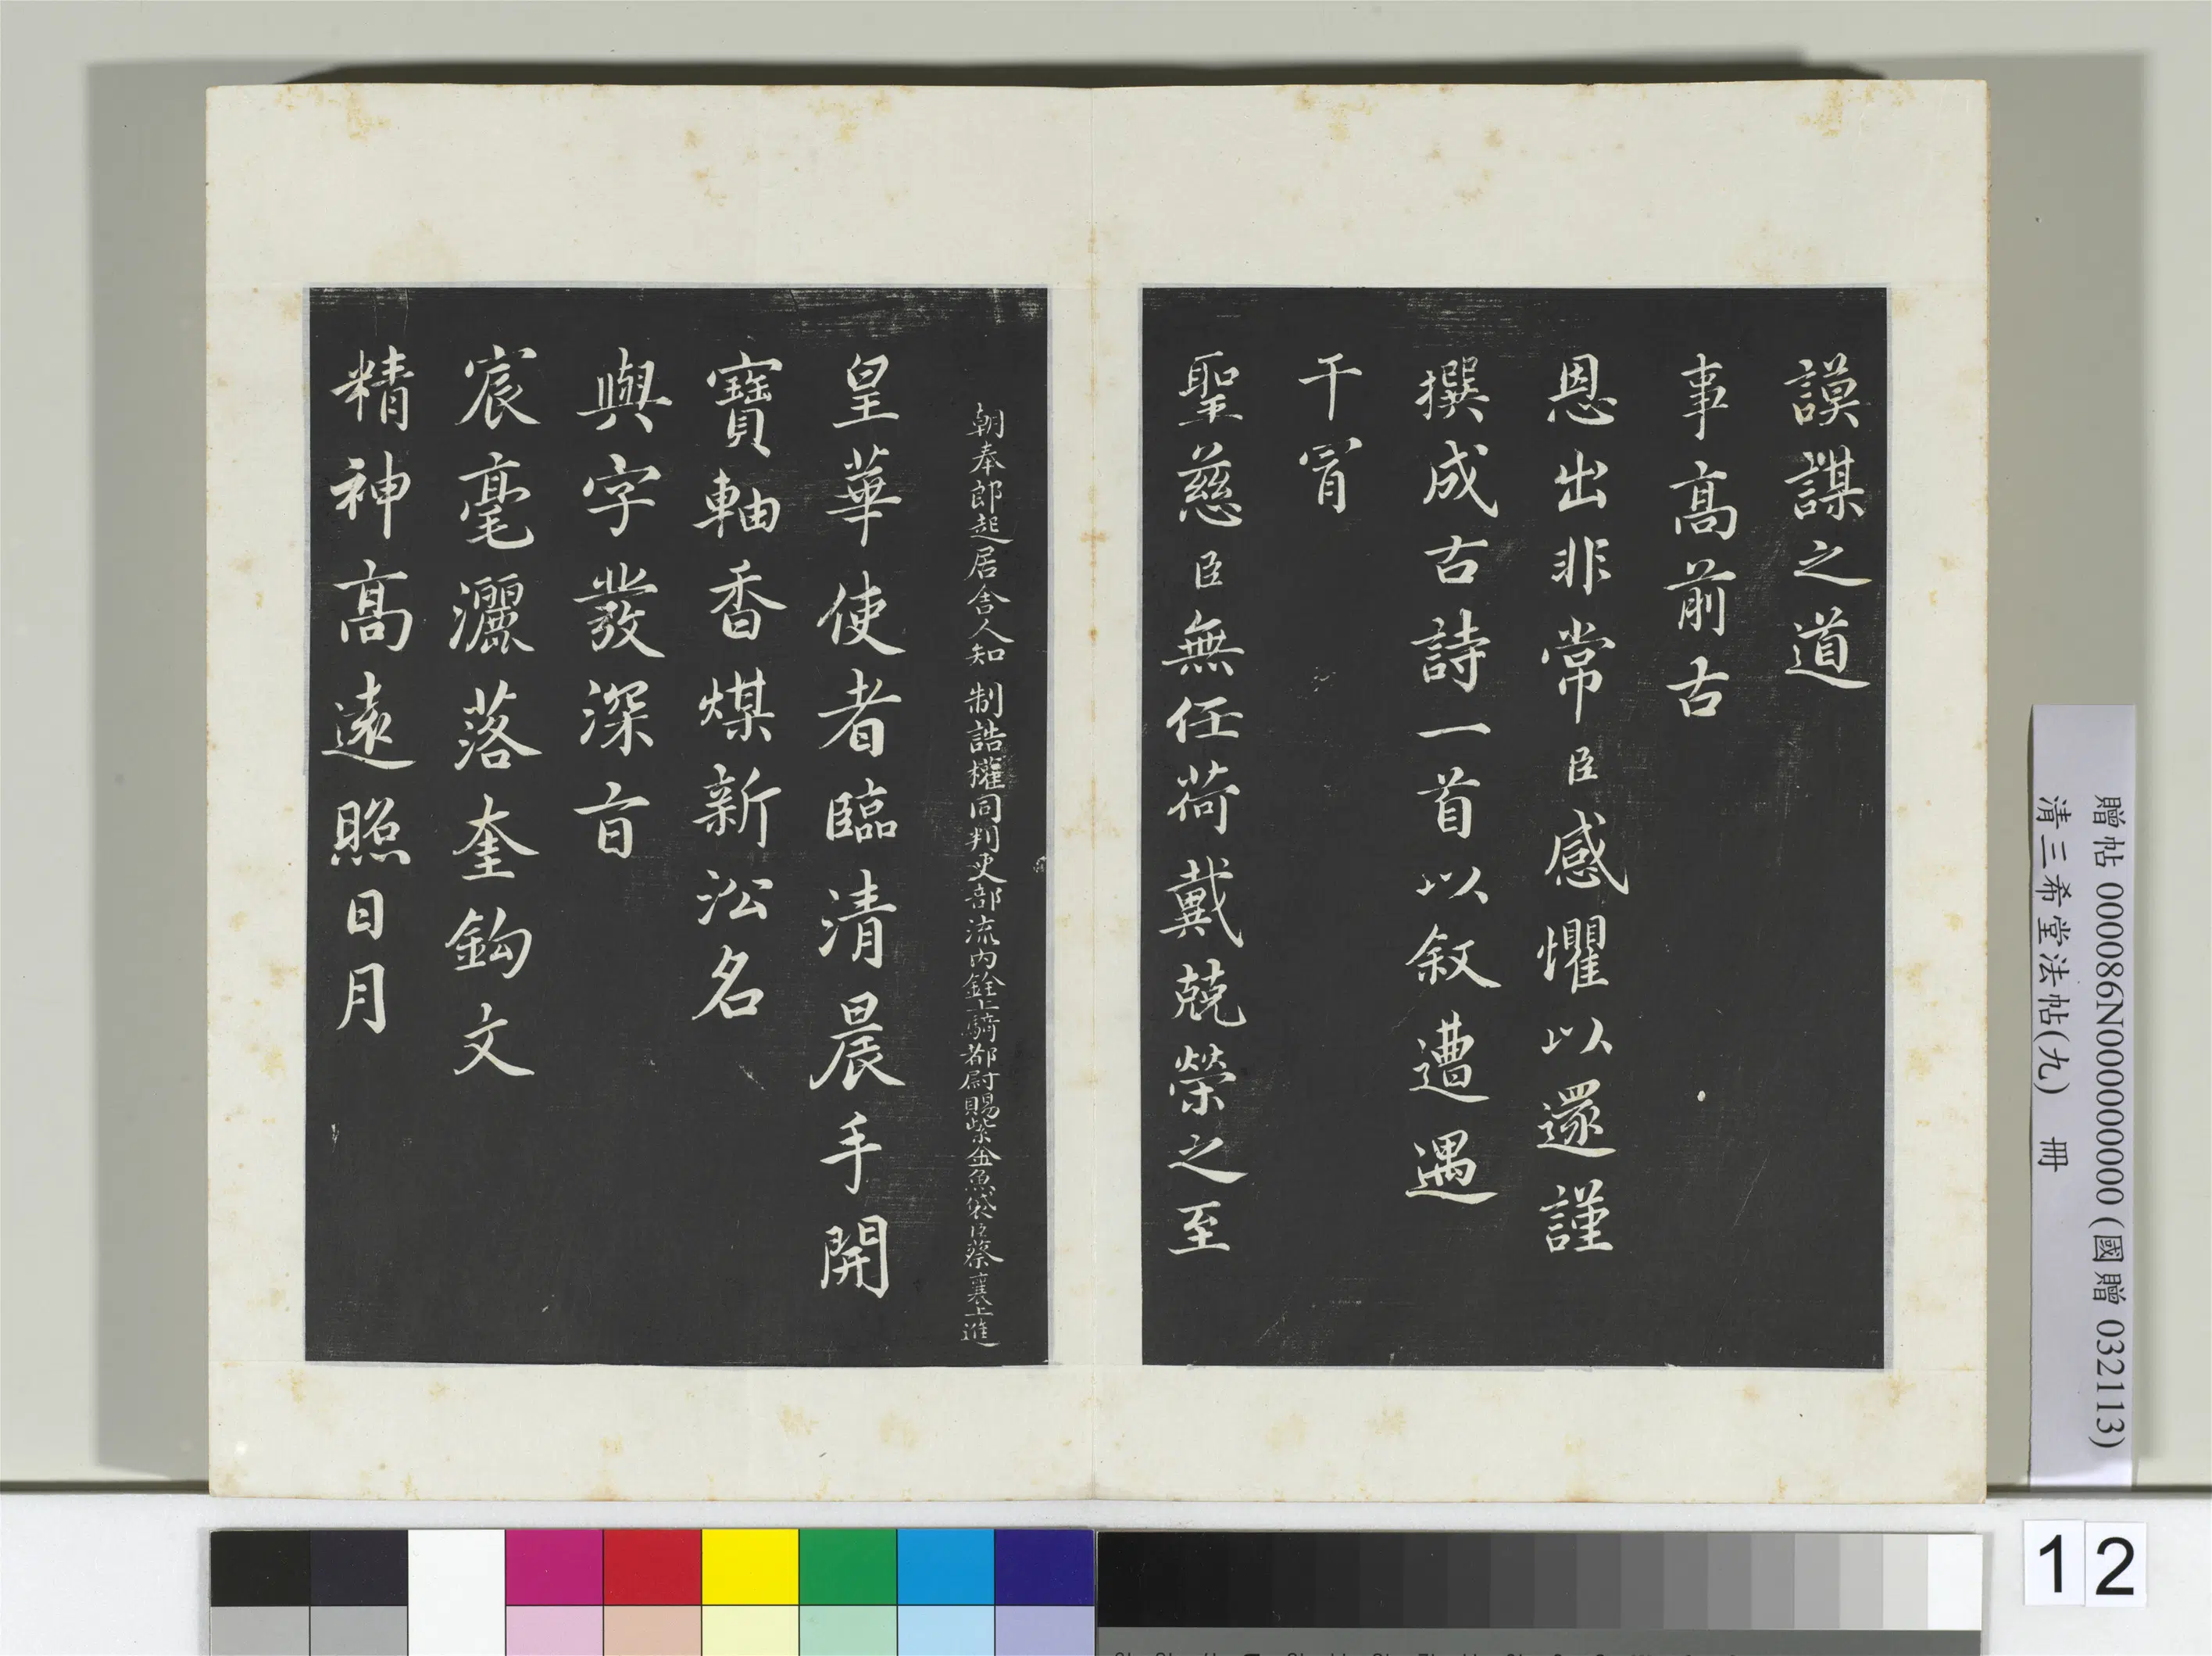 謨謀之道
事高前古
恩出非常臣感懼以還謹
撰成古詩一首以叙遭遇
干冒
聖慈臣無任荷戴兢榮之至
朝奉郎起居舍人知 制誥權同判吏部流內銓上騎都尉賜紫金魚袋臣蔡襄上進
皇華使者臨清晨手開
寶軸香煤新沿名
與字發深旨
宸毫灑落奎鈎文
精神高遠照日月
贈帖 000086N000000000 (國贈 032113)
清三希堂法帖(九) 冊
12